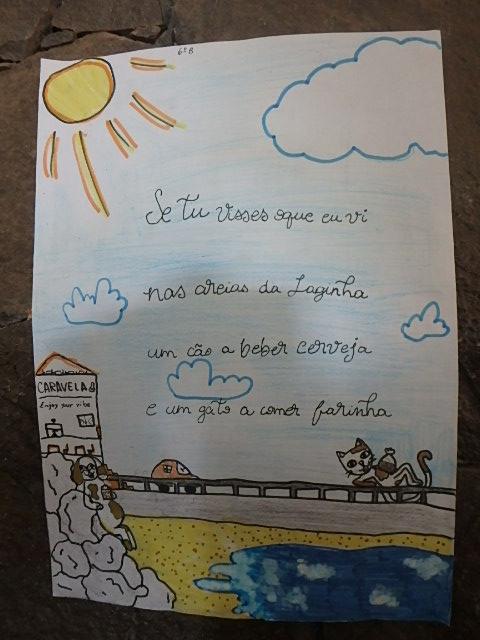 6º B
Se tu visses oque eu vi
nas areias da Laginha
um cão a beber cerveja
e um gato a comer farinha
CARAVELA
Enjoy your vibe